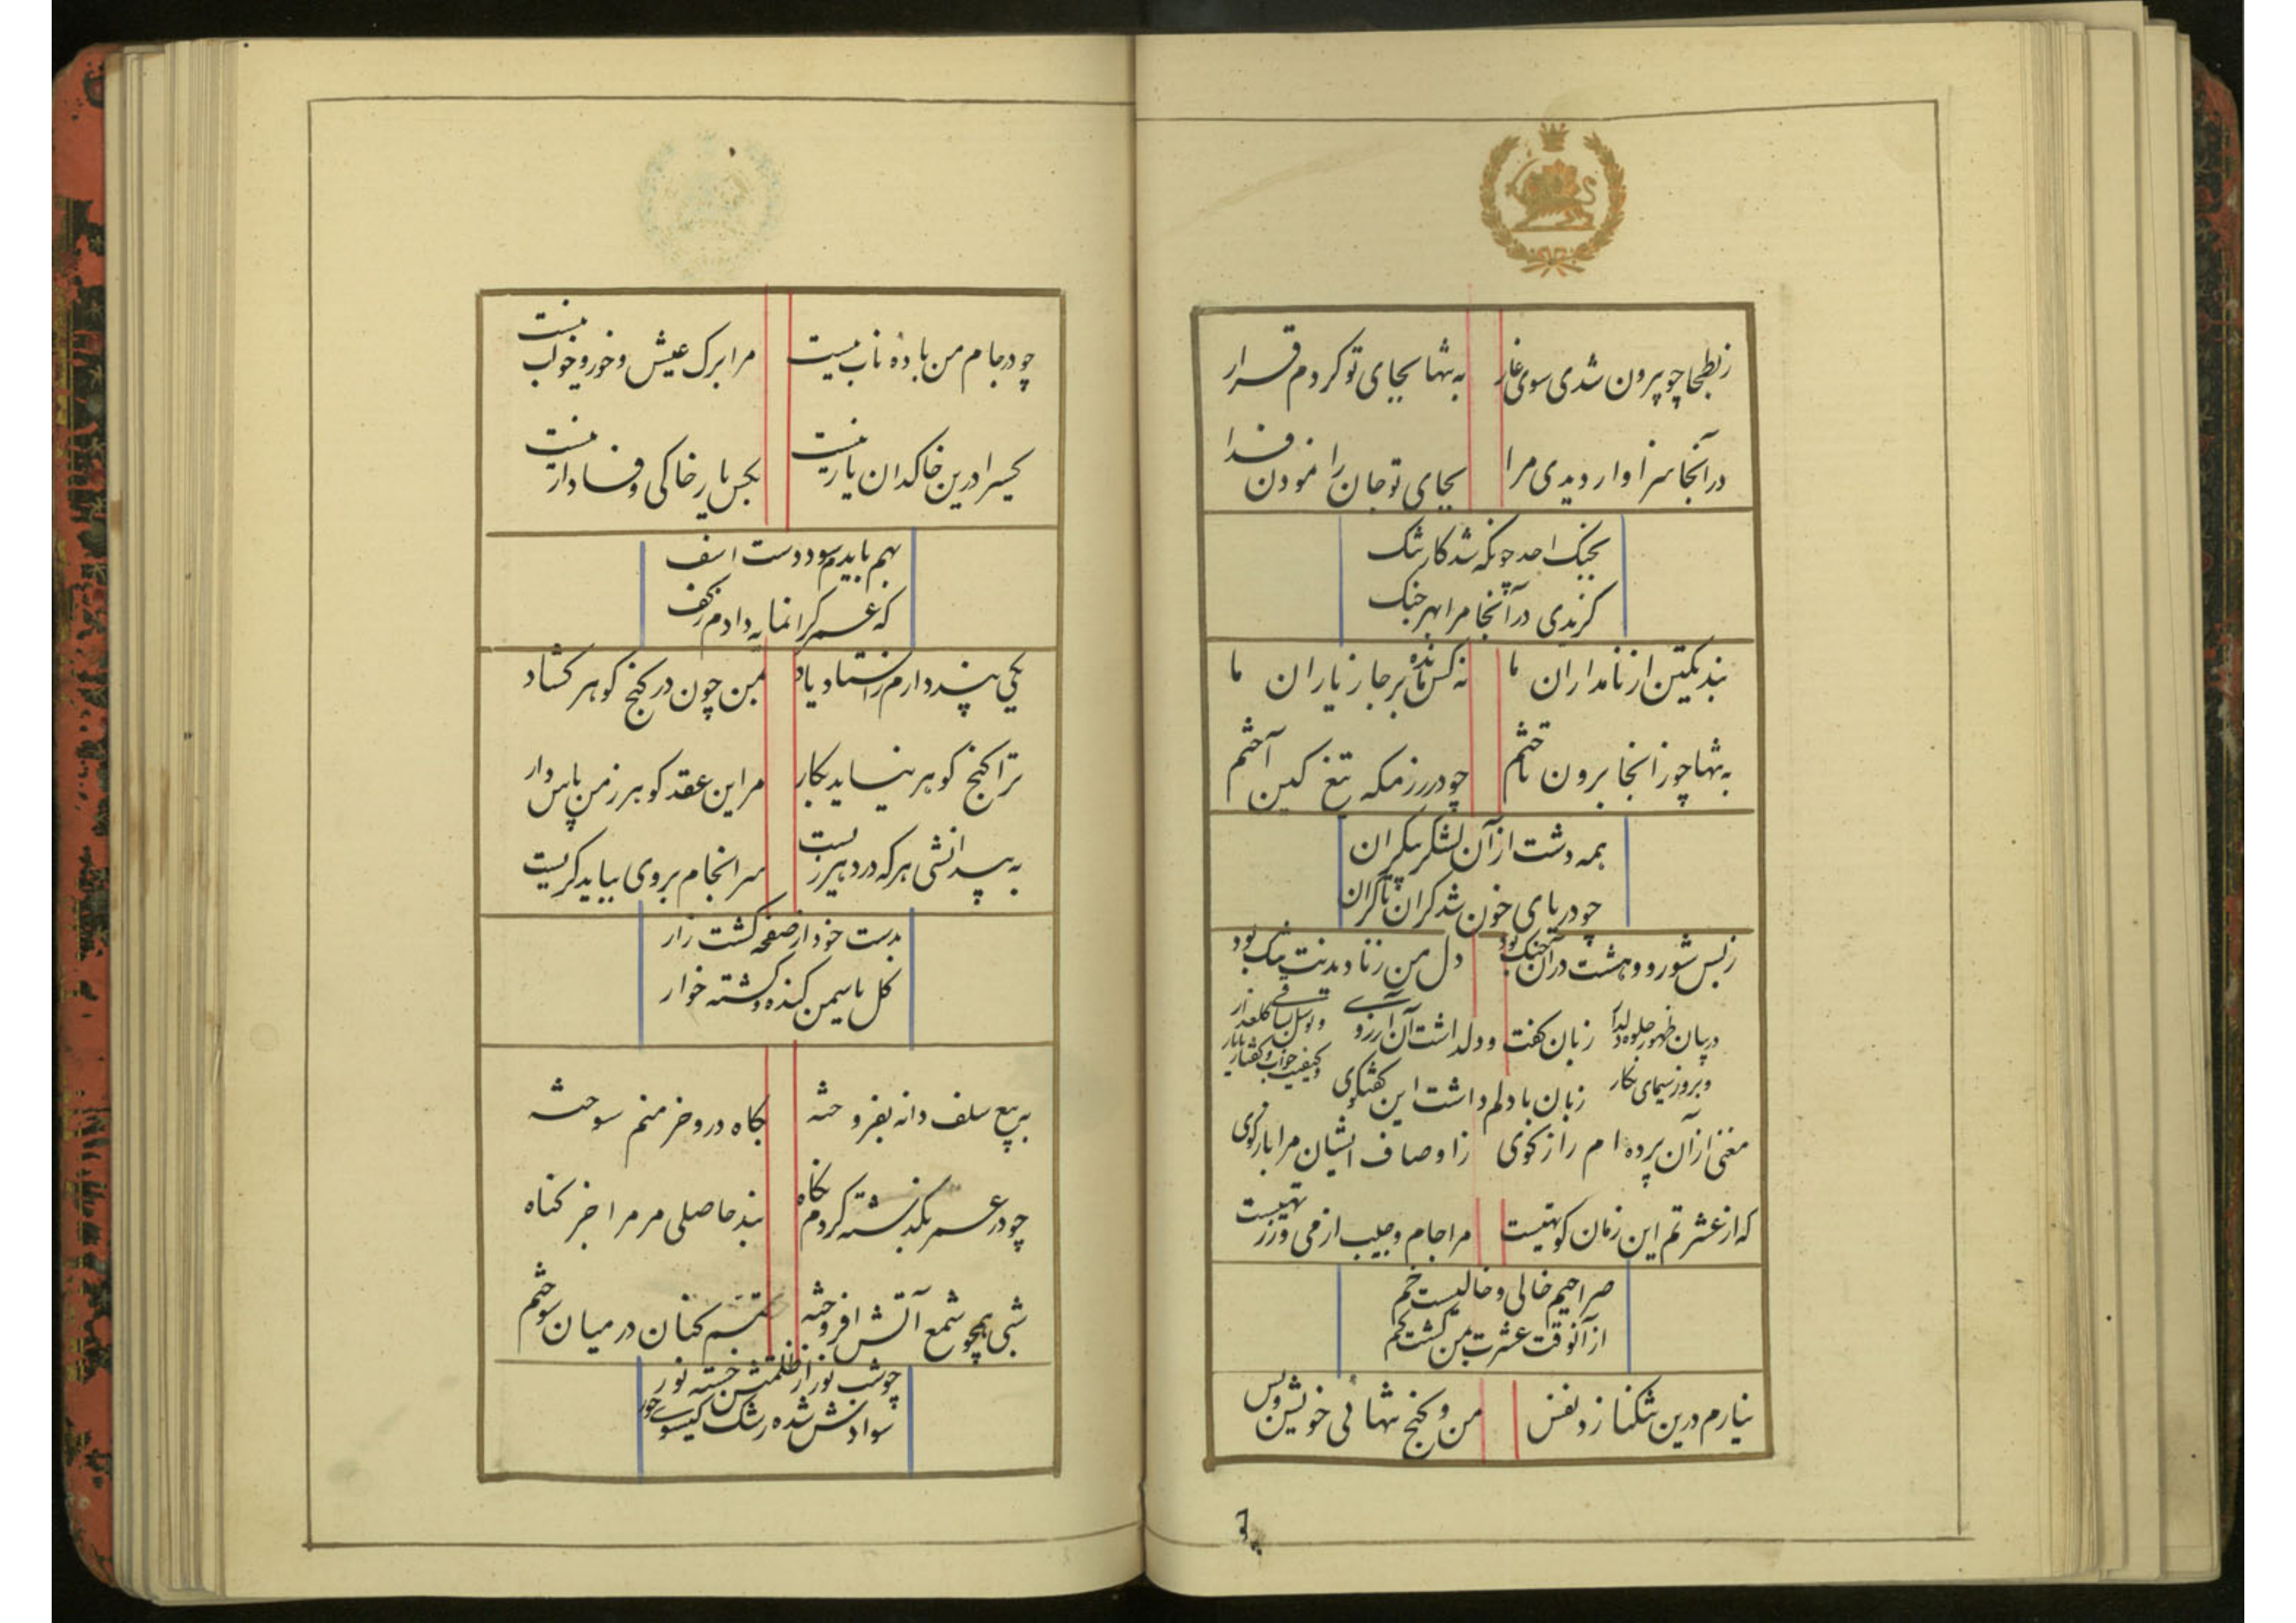 ز بطحا چو بیرون شدی سوی غار به تنها بجای تو کردم قرار
در آنجا سزاوار دیدی مرا بجای تو جان را نمودن فدا
بجنگ احد چونکه شد کار تنگ
گزیدی در آنجا مرا بهر جنگ
نبد یکتن از نامداران ما نه کس مانده بر جا ز یاران ما
به تنها چو ز انجا برون تاختم چو در رزمگه تیغ کین آختم
همه دشت از آن لشکر بیکران
چو دریای خون شد کران تا کران
ز بس شور و وحشت در آن جنگ بود دل من ز نادیدنت تنگ بود
در بیان ظهور جلوه دلدار زبان گفت و دل داشت آن آرزوی
و بروز سیمای نگار زبان با دلم داشت این گفتگوی
مغنی از آن پرده ام راز گوی ز اوصاف ایشان مرا باز گوی
که از عشرتم این زمان کوتهیست مرا جام و جیب از می و زر تهیست
صراحیم خالی و خالیست خم
از آنوقت عشرت بمن گشت گم
نیارم درین تنگنا زد نفس من و کنج تنهائی خویش و بس
چو در جام من باده ناب نیست مرا برگ عیش و خور و خواب نیست
کسیرا درین خاکدان یار نیست بجس یار خاکی وفادار نیست
بهم بایدم سود دست اسف
که عمر گرانمایه دادم ز کف
یکی پند دارم ز استاد یاد بمن چون در گنج گوهر گشاد
ترا گنج گوهر نیاید بکار مر این عقد گوهر ز من پاس دار
به بیدانشی هرکه در دهر زیست سرانجام بر وی بباید گریست
بدست خود از صفحه کشت زار
گل یاسمن کنده و کشته خوار
به بیع سلف دانه بفروخته بگاه درو خرمنم سوخته
چو در عمر بگذشته کردم نگاه نبد حاصلی مر مرا جز گناه
شبی همچو شمع آتش افروخته تبسم کنان در میان سوختم
چو شب نوز از ظلمتش جسته نور
سوادش شده رشک گیسوی حور